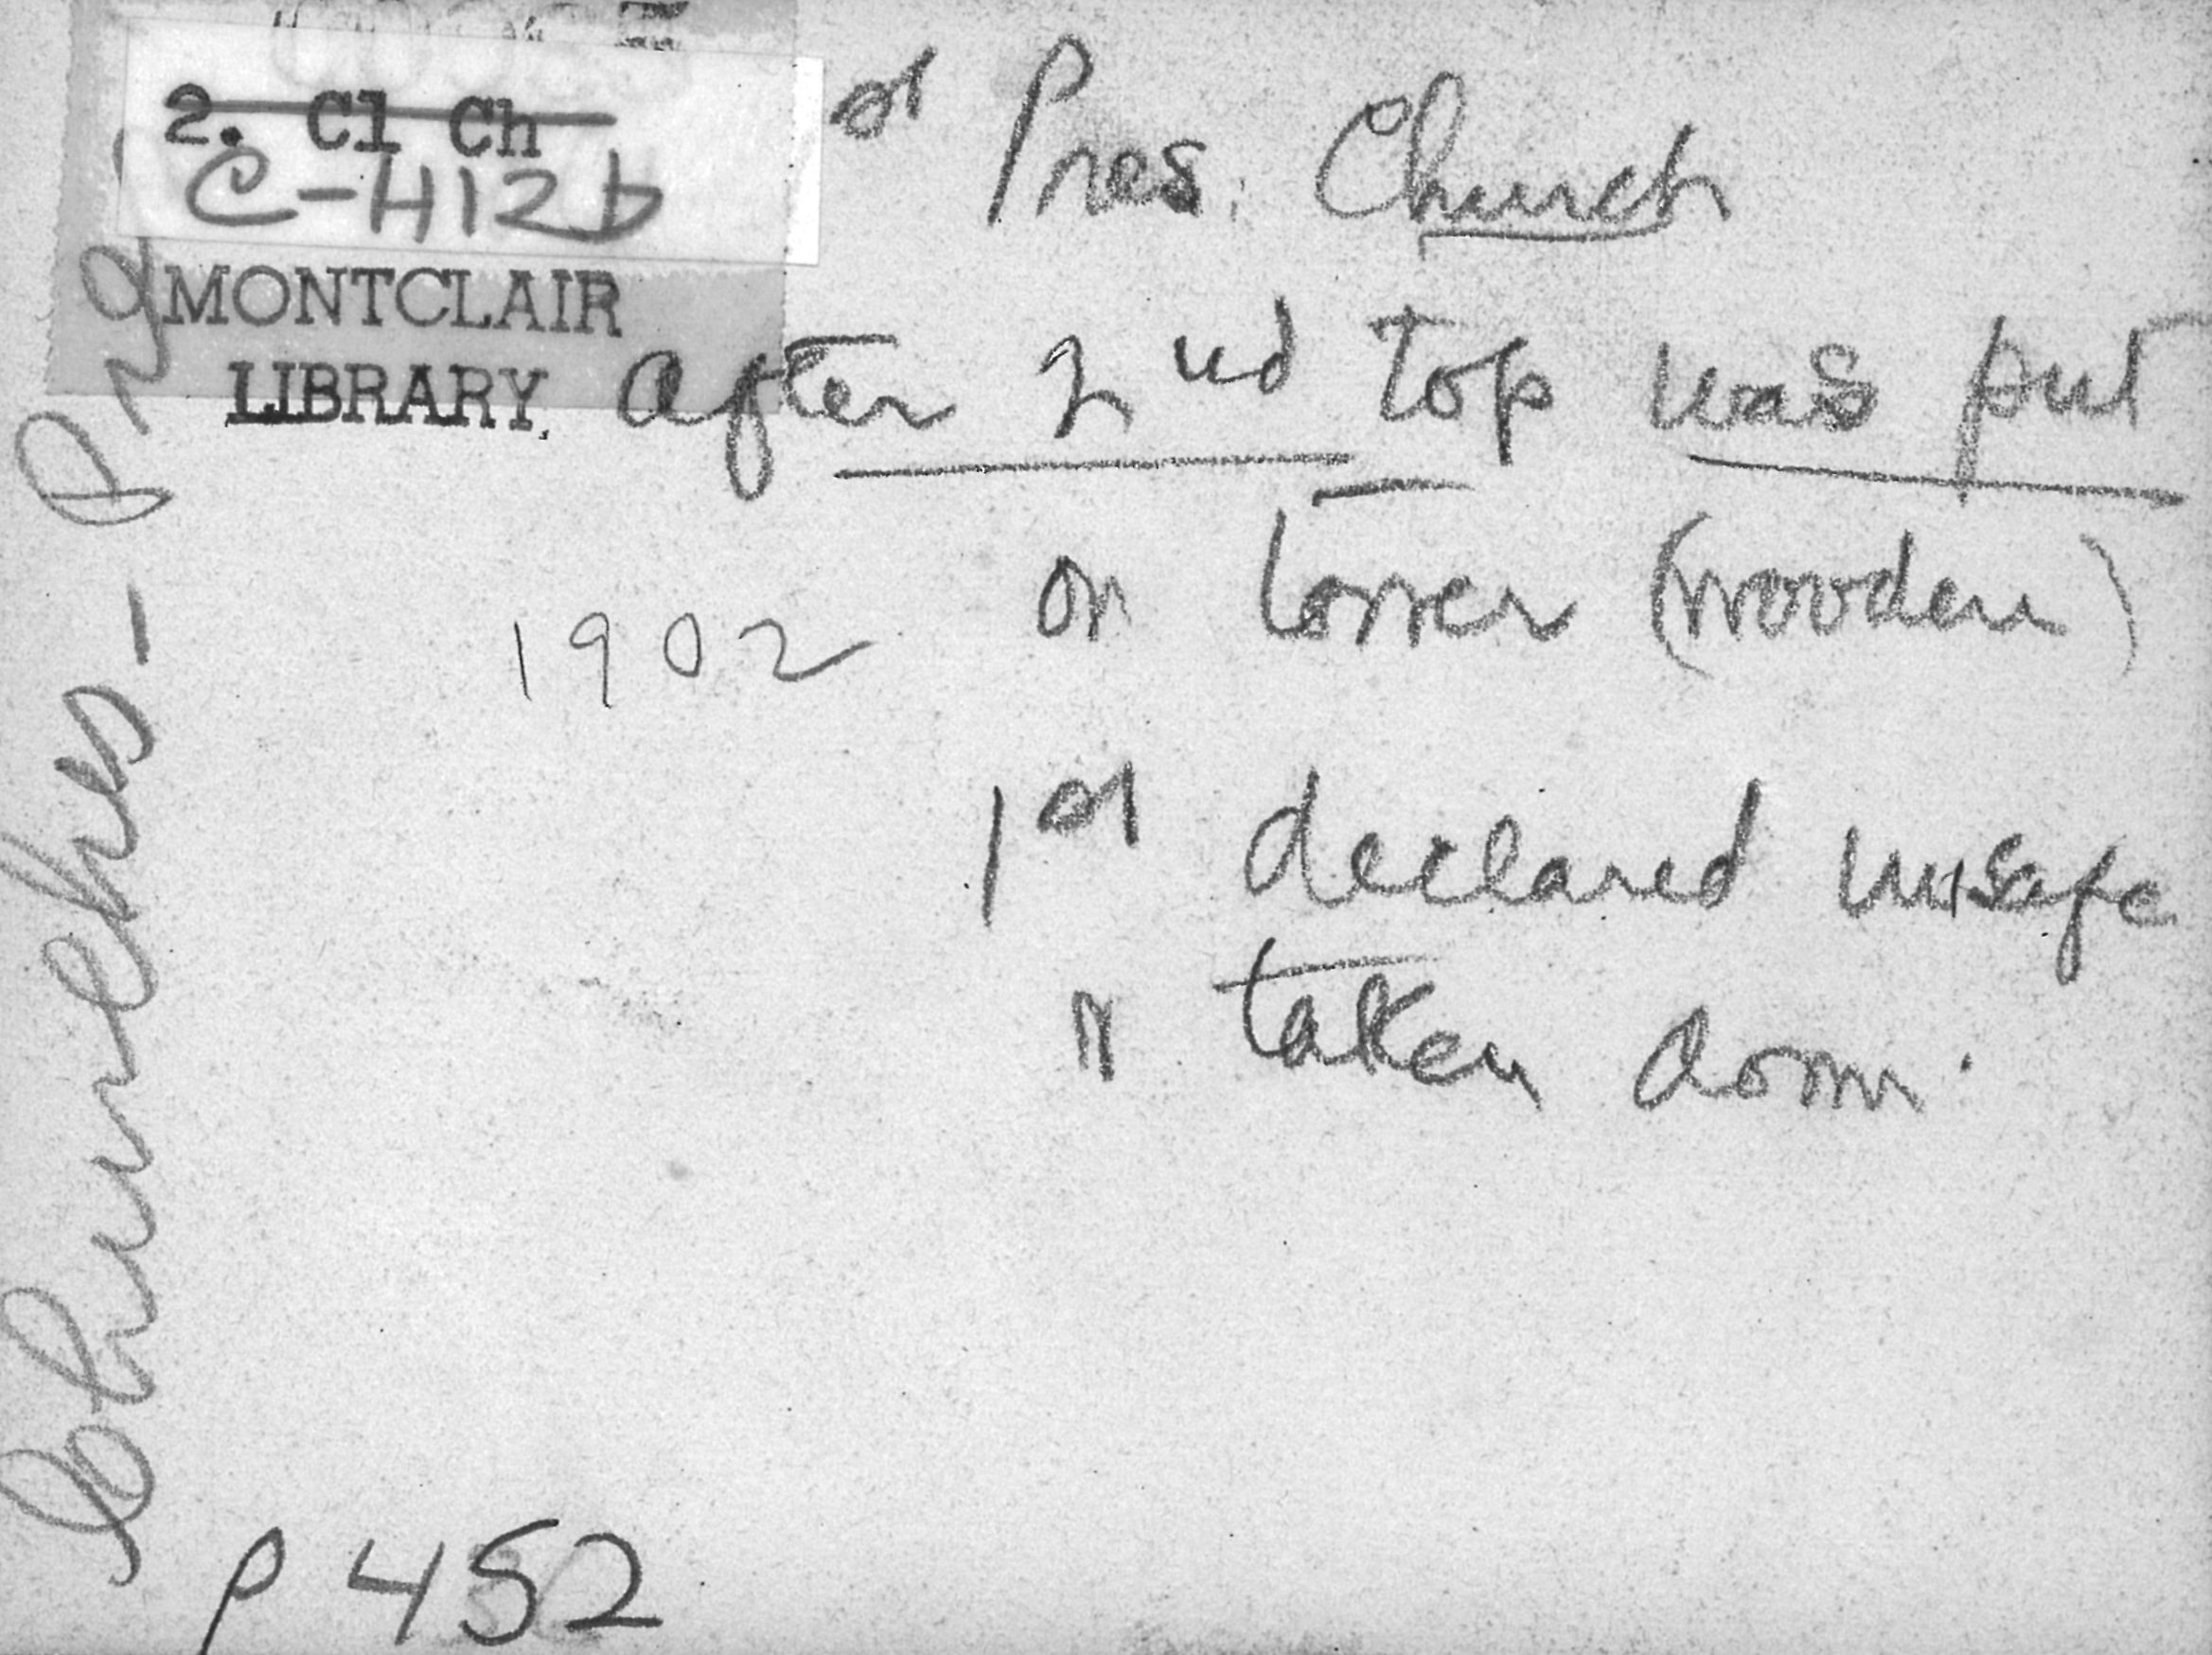 2. Cl Ch
C-H12b
MONTCLAIR
LIBRARY.
st Pres. Church
after 2nd top was put
on tower (wooden)
1902
1st declared unsafe
" taken down.
Churches - Pre
p 452